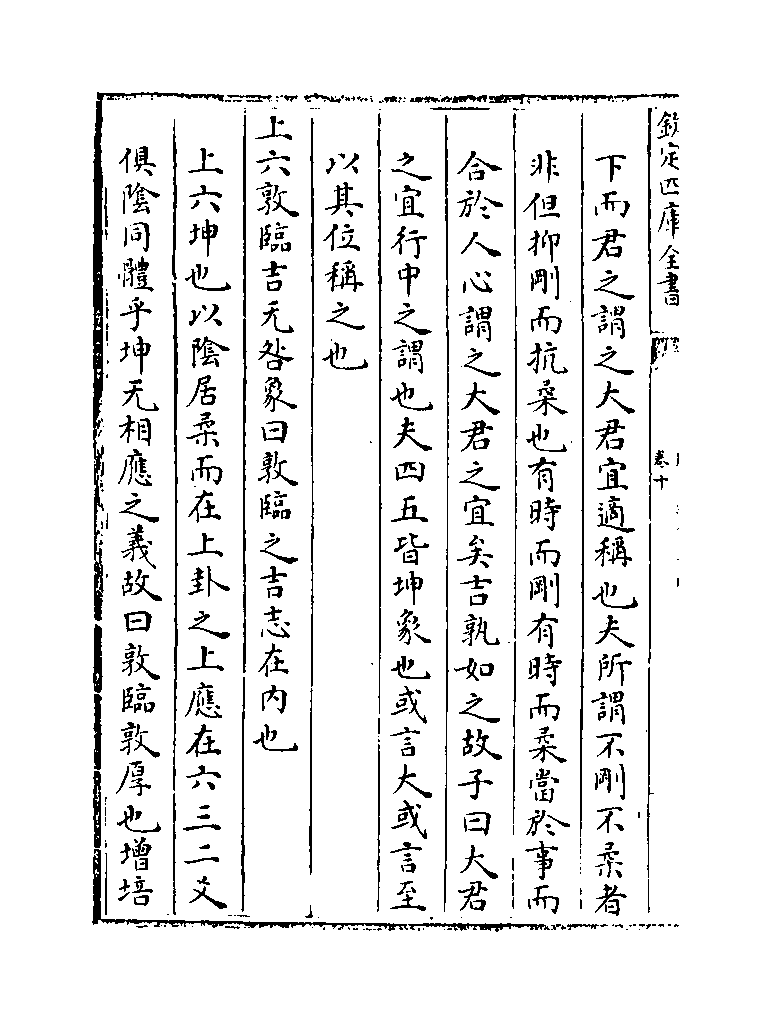 欽定四庫全書
卷十
下而君之謂之大君宜適稱也夫所謂不剛不柔者
非但抑剛而抗柔也有時而剛有時而柔當於事而
合於人心謂之大君之宜矣吉孰如之故子曰大君
之宜行中之謂也夫四五皆坤象也或言大或言至
以其位稱之也
上六敦臨吉无咎象曰敦臨之吉志在内也
上六坤也以陰居柔而在上卦之上應在六三二爻
俱陰同體乎坤无相應之義故曰敦臨敦厚也增培